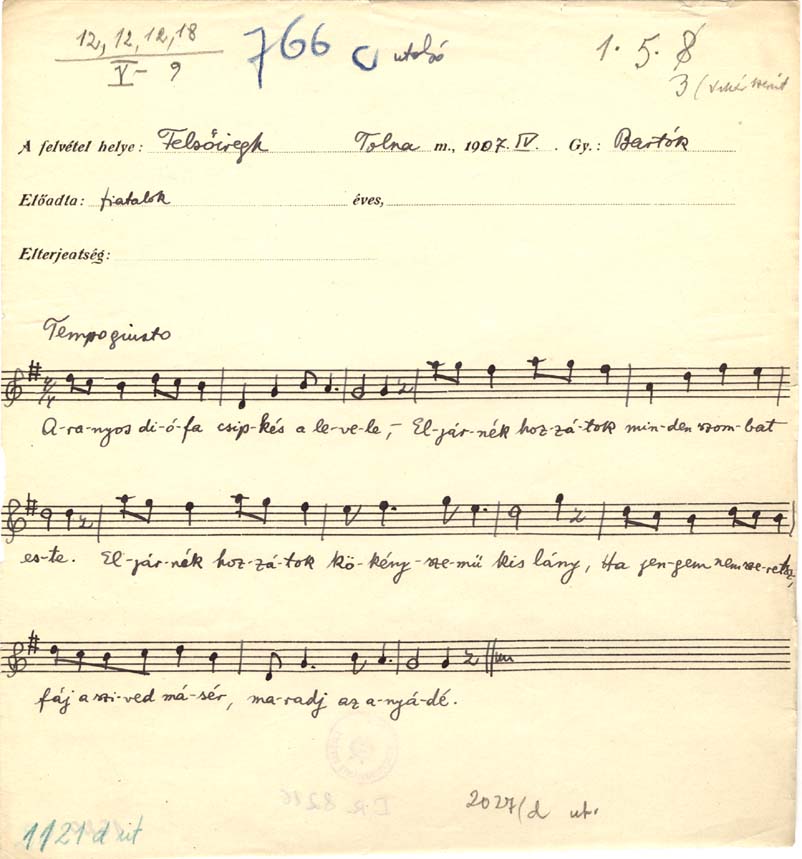 12, 12, 12, 18
V - 9
766 c utolsó
1. 5. 8
3 (Vikár szerint
A felvétel helye: Felsőiregh Tolna m., 1907. IV. Gy.: Bartók
Előadta: fiatalok éves,
Elterjeatség:
Tempo giusto
A-ra-nyos di-ó-fa csip-kés a le-ve-le, - El-jár-nék hoz-zá-tok min-den szom-bat
es-te. El-jár-nék hoz-zá-tok kö-kény-sze-mü kis lány, Ha jen-gem nem sze-retsz,
fáj a szi-ved má-sér, ma-radj az a-nyá-dé.
2027/d ut.
1121 d út